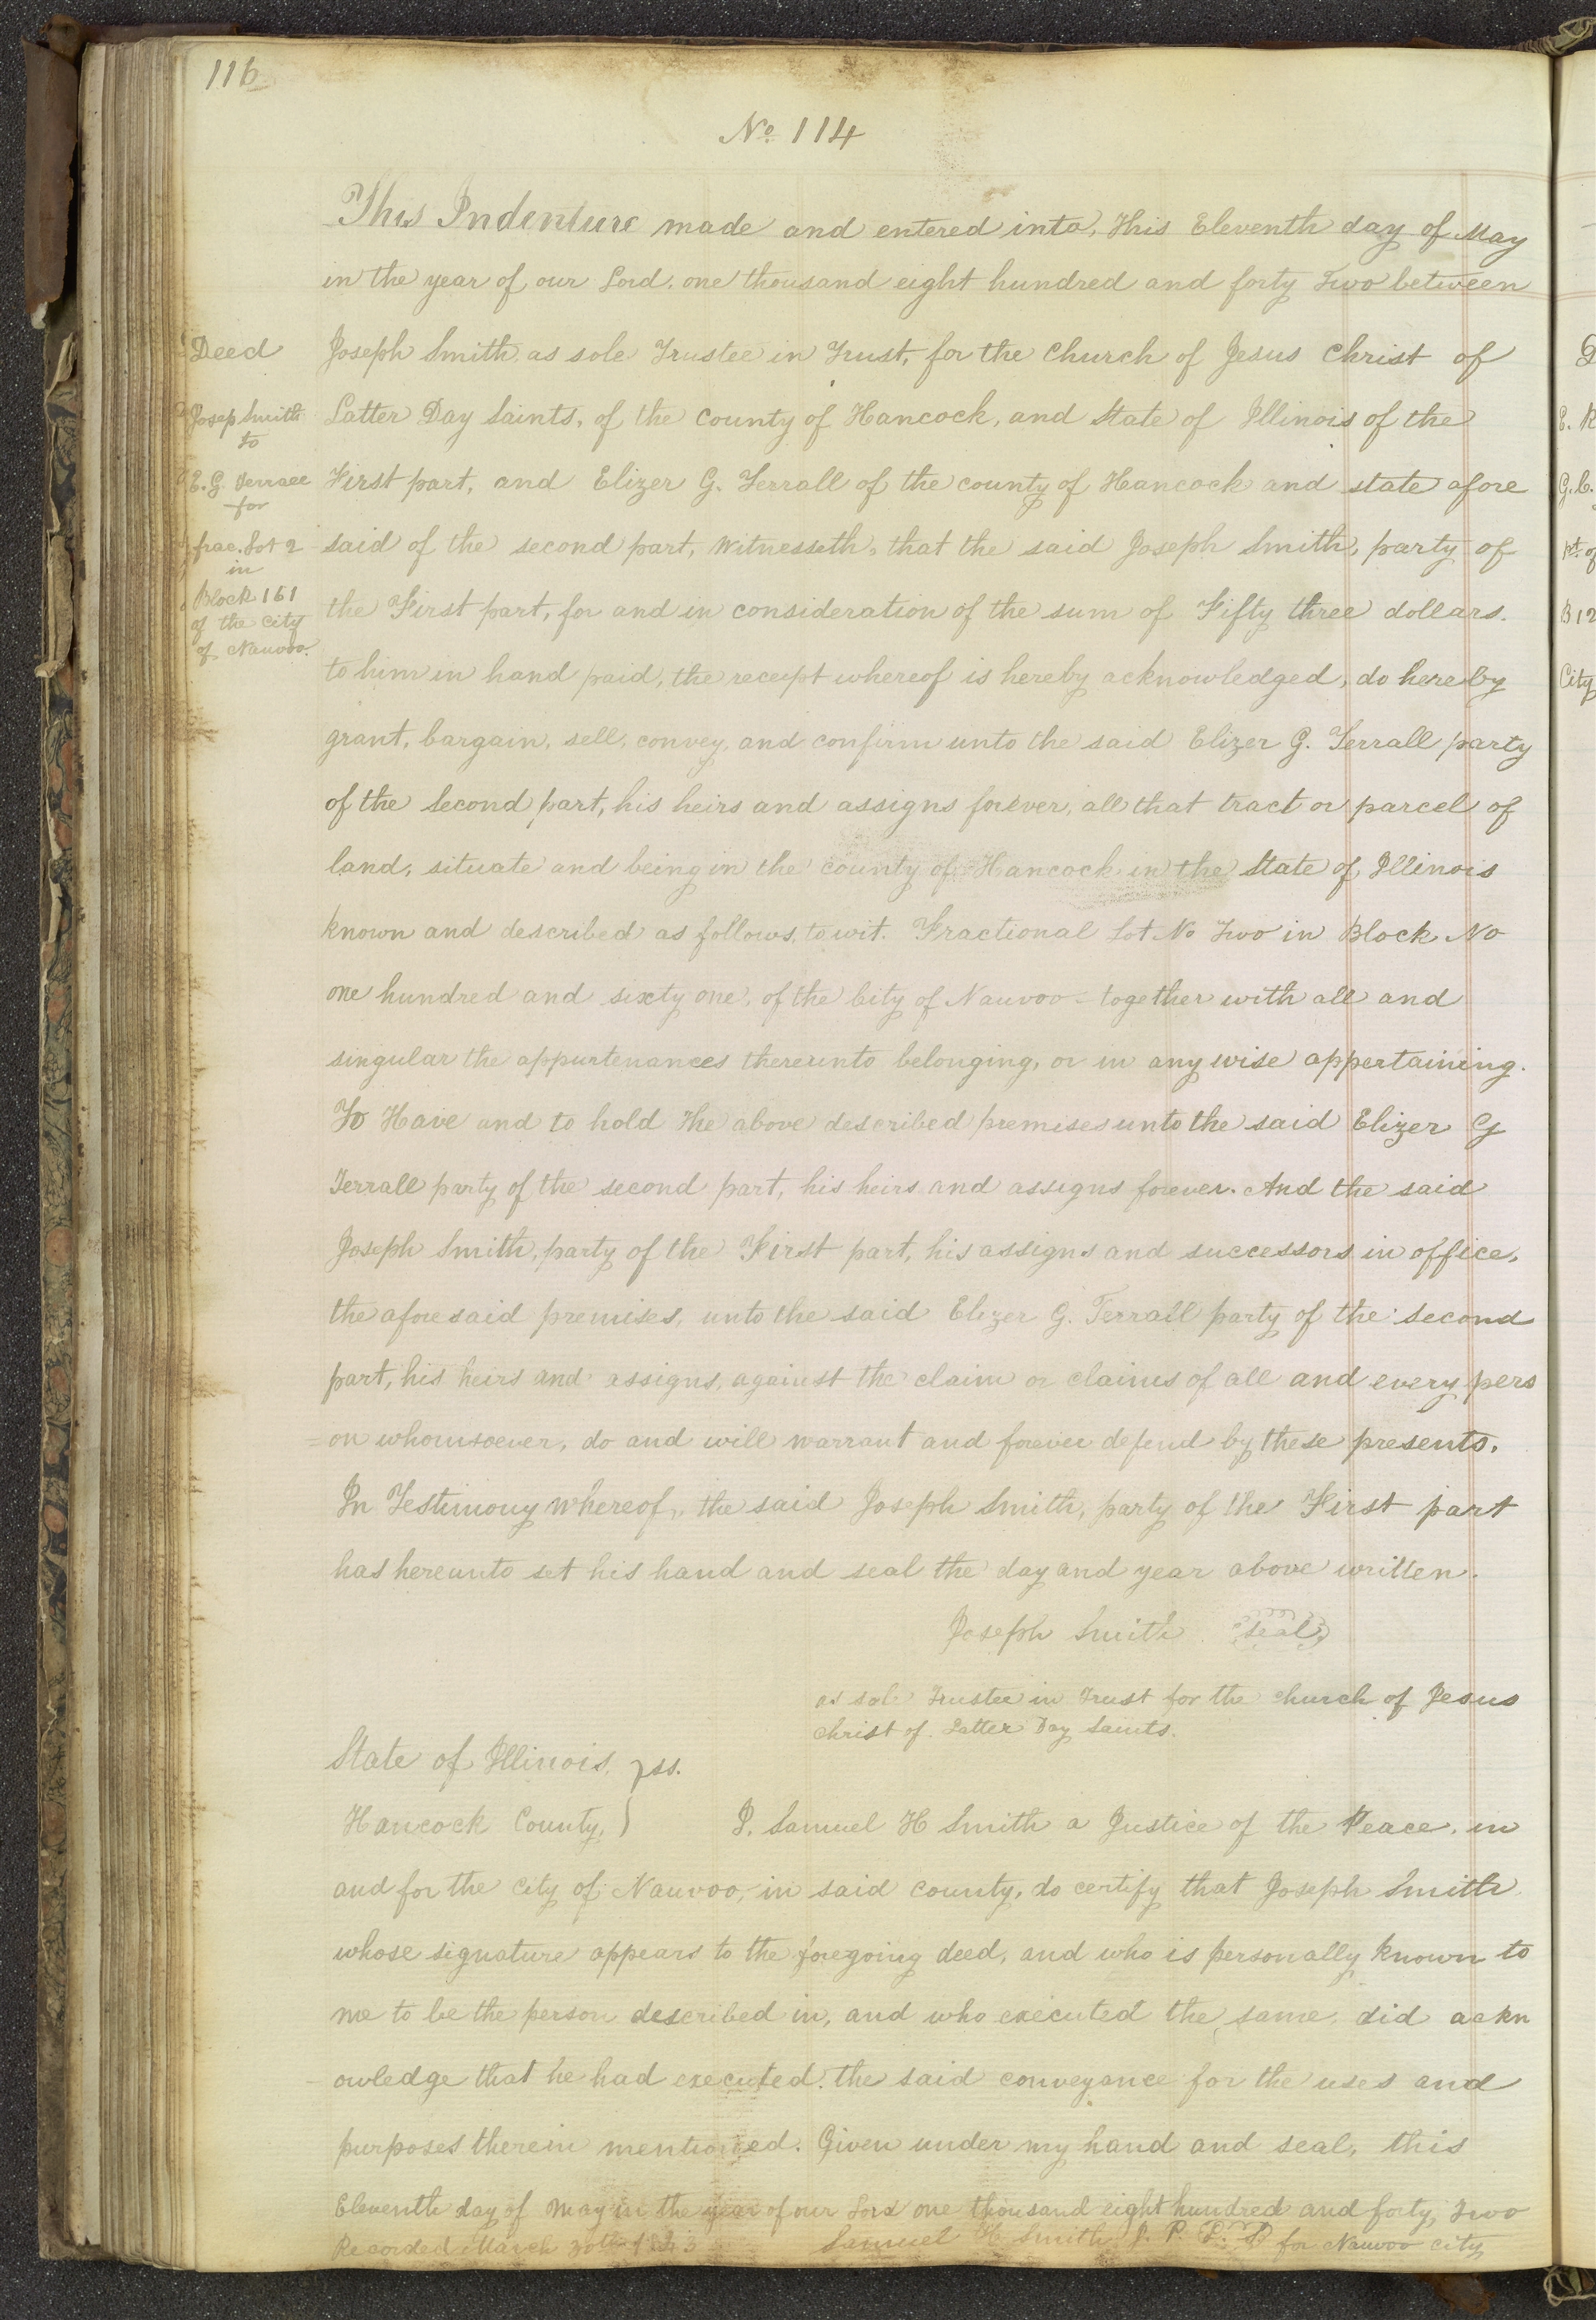 116
No. 114
This Indenture made and entered into, this Eleventh day of May
in the year of our Lord. one thousand eight hundred and forty Two between
Deed
Joseph Smith as sole Trustee in Trust, for the Church of Jesus Christ of
Josep Smith
to
Latter Day Saints, of the County of Hancock, and State of Illinois of the
E. G. Terrall
for
First part, and Elizer G. Terrall of the county of Hancock and state afore
frac. Lot 2
in
said of the second part, Witnesseth, that the said Joseph Smith, party of
Block 161
of the city
of Nauvoo.
the First part, for and in consideration of the sum of Fifty three dollars.
to him in hand paid, the receept whereof is hereby acknowledged, do hereby
grant, bargain, sell, convey, and confirm unto the said Elizer G. Terrall party
of the Second part, his heirs and assigns forever, all that tract or parcel of
land, situate and being in the county of Hancock in the State of Illinois
known and described as follows, to wit. Fractional Lot No Two in Block No
one hundred and sixty one, of the City of Nauvoo - together with all and
singular the appurtenances thereunto belonging, or in any wise appertaining.
To Have and to hold the above described premises unto the said Elizer G
Terrall party of the second part, his heirs and assigns forever. And the said
Joseph Smith, party of the First part, his assigns and successors in office,
the afore said premises, unto the said Elizer G. Terrall party of the second
part, his heirs and assigns, against the claim or claims of all and every pers
=on whomsoever, do and will warrant and forever defend by these presents.
In Testimony whereof, the said Joseph Smith, party of the First part
has hereunto set his hand and seal the day and year above written.
Joseph Smith seal
as sole Trustee in Trust for the church of Jesus
Christ of Latter Day Saints.
State of Illinois, } ss.
Hancock County, } I. Samuel H Smith a Justice of the Peace, in
and for the City of Nauvoo, in said county, do certify that Joseph Smith
whose signature appears to the foregoing deed, and who is personally known to
me to be the person described in, and who executed the same, did ackn
owledge that he had executed the said conveyance for the uses and
purposes therein mentioned. Given under my hand and seal, this
Eleventh day of May in the year of our Lord one thousand eight hundred and forty, Two
Recorded March 1843 Samuel H Smith J. P. for Nauvoo City
E.
G. C.
pt. of
B 12
City